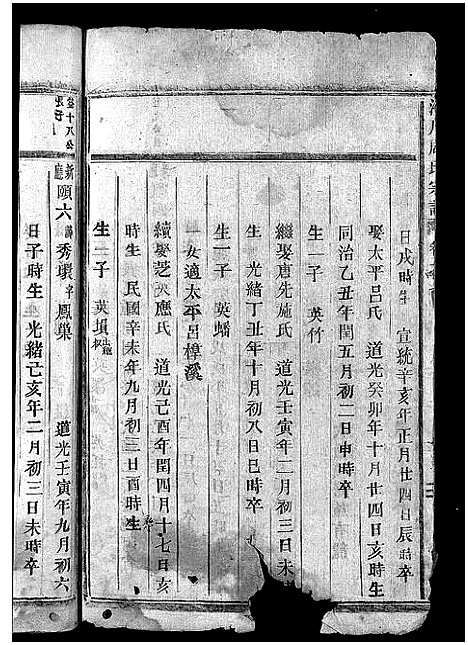 日戌時生 宣統辛亥年正月廿四日辰時卒
娶太平呂氏 道光癸卯年十月廿四日亥時生
同治乙丑年閏五月初二日申時卒
生一子 英竹
繼娶唐先施氏 道光壬寅年二月初三日未
生 光緒丁丑年十月初八日巳時卒
生一子 英蟠
一女適太平呂樟溪
續娶芝英應氏 道光己酉年閏四月十七日亥
時生 民國辛未年九月初三日酉時生
生一子 英塤
廳
頤六 秀環 字鳳巢 道光壬寅年九月初六
日子時生 光緒己亥年二月初三日未時卒